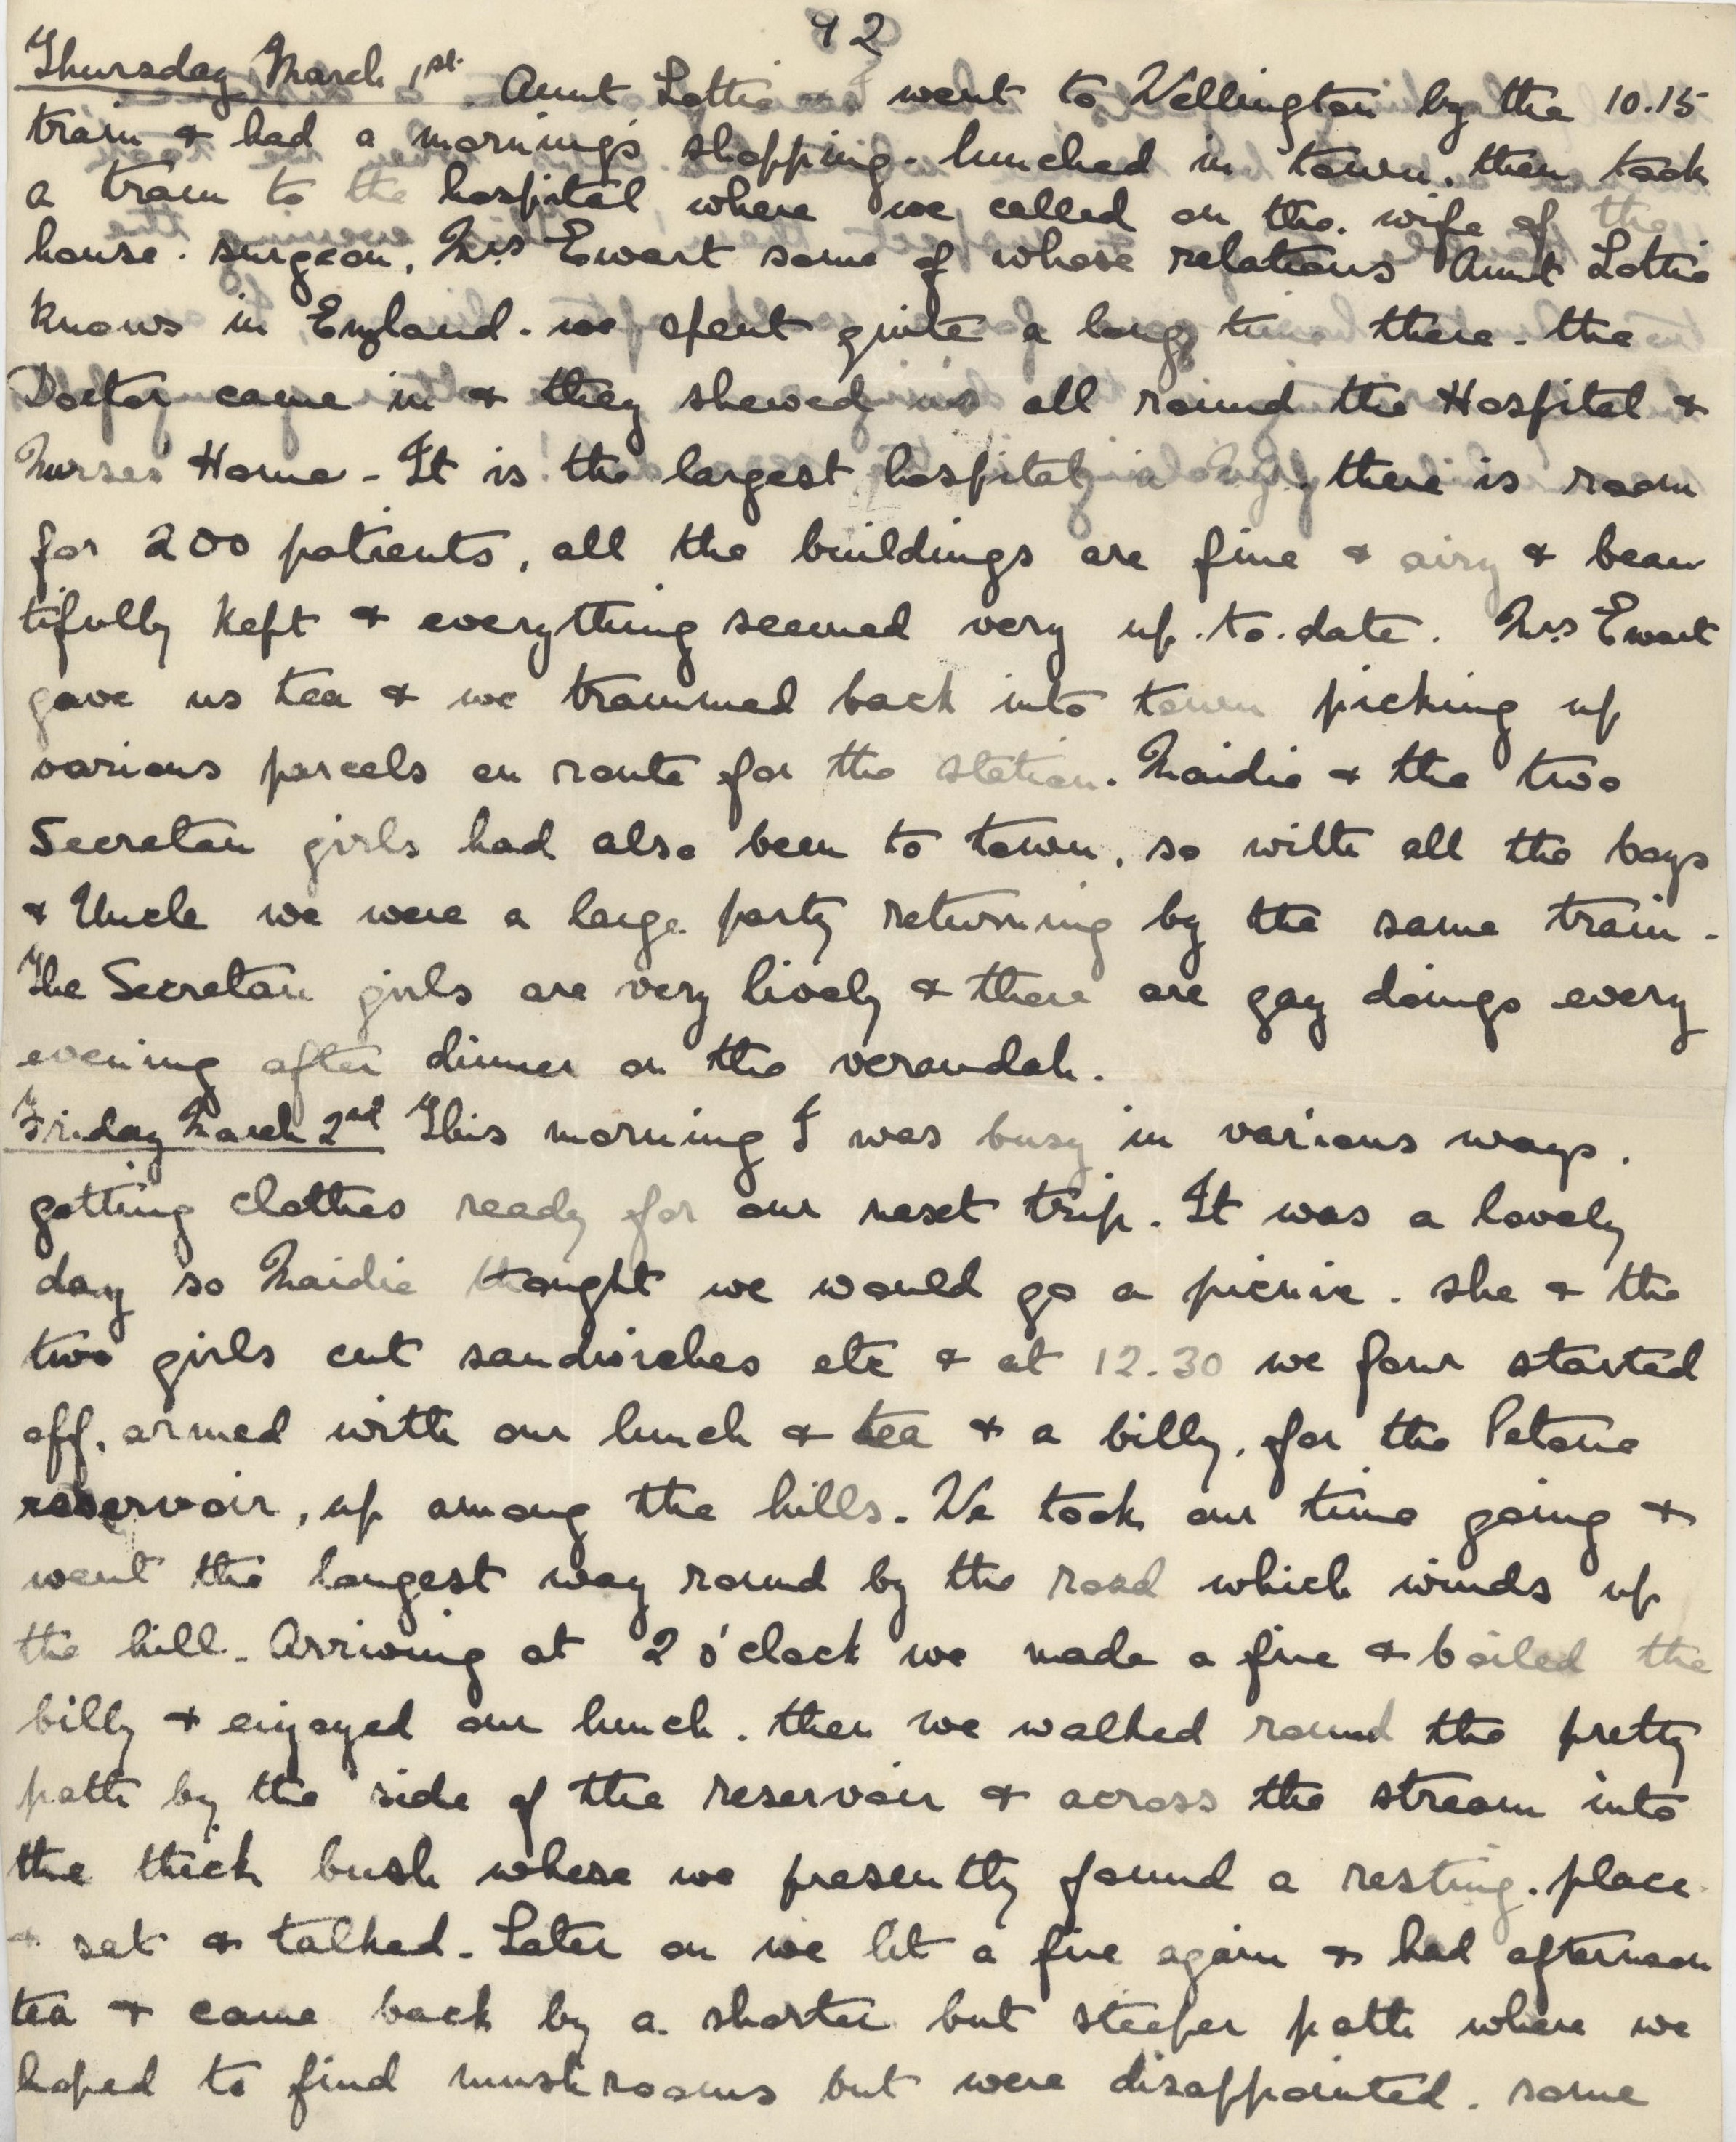 92
Thursday March 1st. Aunt Lottie & I went to Wellington by the 10.15
train & had a morning's shopping. lunched in town. then took
a tram to the hospital where we called on the. wife of the
house. surgeon, Mrs Ewart some of whose relations Aunt Lottie
knows in England. we spent quite a long time there. the
Doctor came in & they shewed us all round the Hospital &
Nurses' Home - It is the largest hospital in N.Z. there is room
for 200 patients, all the buildings are fine & airy & beau
tifully kept & everything seemed very up. to. date. Mrs Ewart
gave us tea & we trammed back into town picking up
various parcels en route for the station. Maidie & the two
Secretan girls had also been to town, so with all the boys
& Uncle we were a large party returning by the same train -
The Secretan girls are very lively & there are gay doings every
evening after dinner on the verandah.
Friday March 2nd This morning I was busy in various ways.
getting clothes ready for our next trip. It was a lovely
day so Maidie thought we would go a picnic. she & the
two girls cut sandwiches etc & at 12.30 we four started
off, armed with our lunch & tea & a billy, for the Petone
reservoir, up among the hills. We took our time going &
went the longest way round by the road which winds up
the hill. Arriving at 2 o'clock we made a fire & boiled the
billy & enjoyed our lunch. then we walked round the pretty
path by the side of the reservoir & across the stream into
the thick bush where we presently found a resting. place.
& sat & talked. Later on we lit a fire again & had afternoon
tea & came back by a. shorter but steeper path where we
hoped to find mushrooms but were disappointed. some